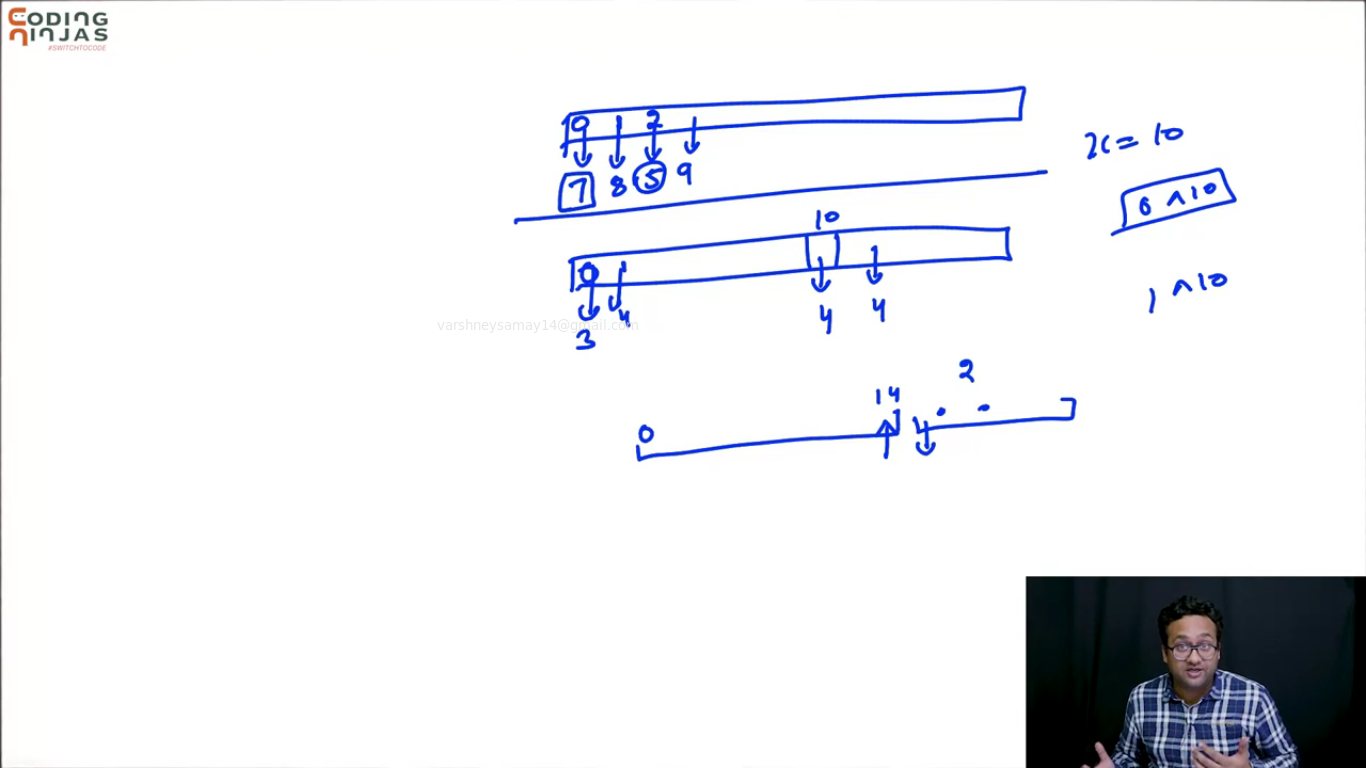 CODING
NINJAS
#SWITCHTOCODE
0 1 2 1
7 8 5 9
x = 10
0 ^ 10
10
0 1 1
4 4 4
varshneysamay14@gmail.com
3
1 ^ 10
2
14
0